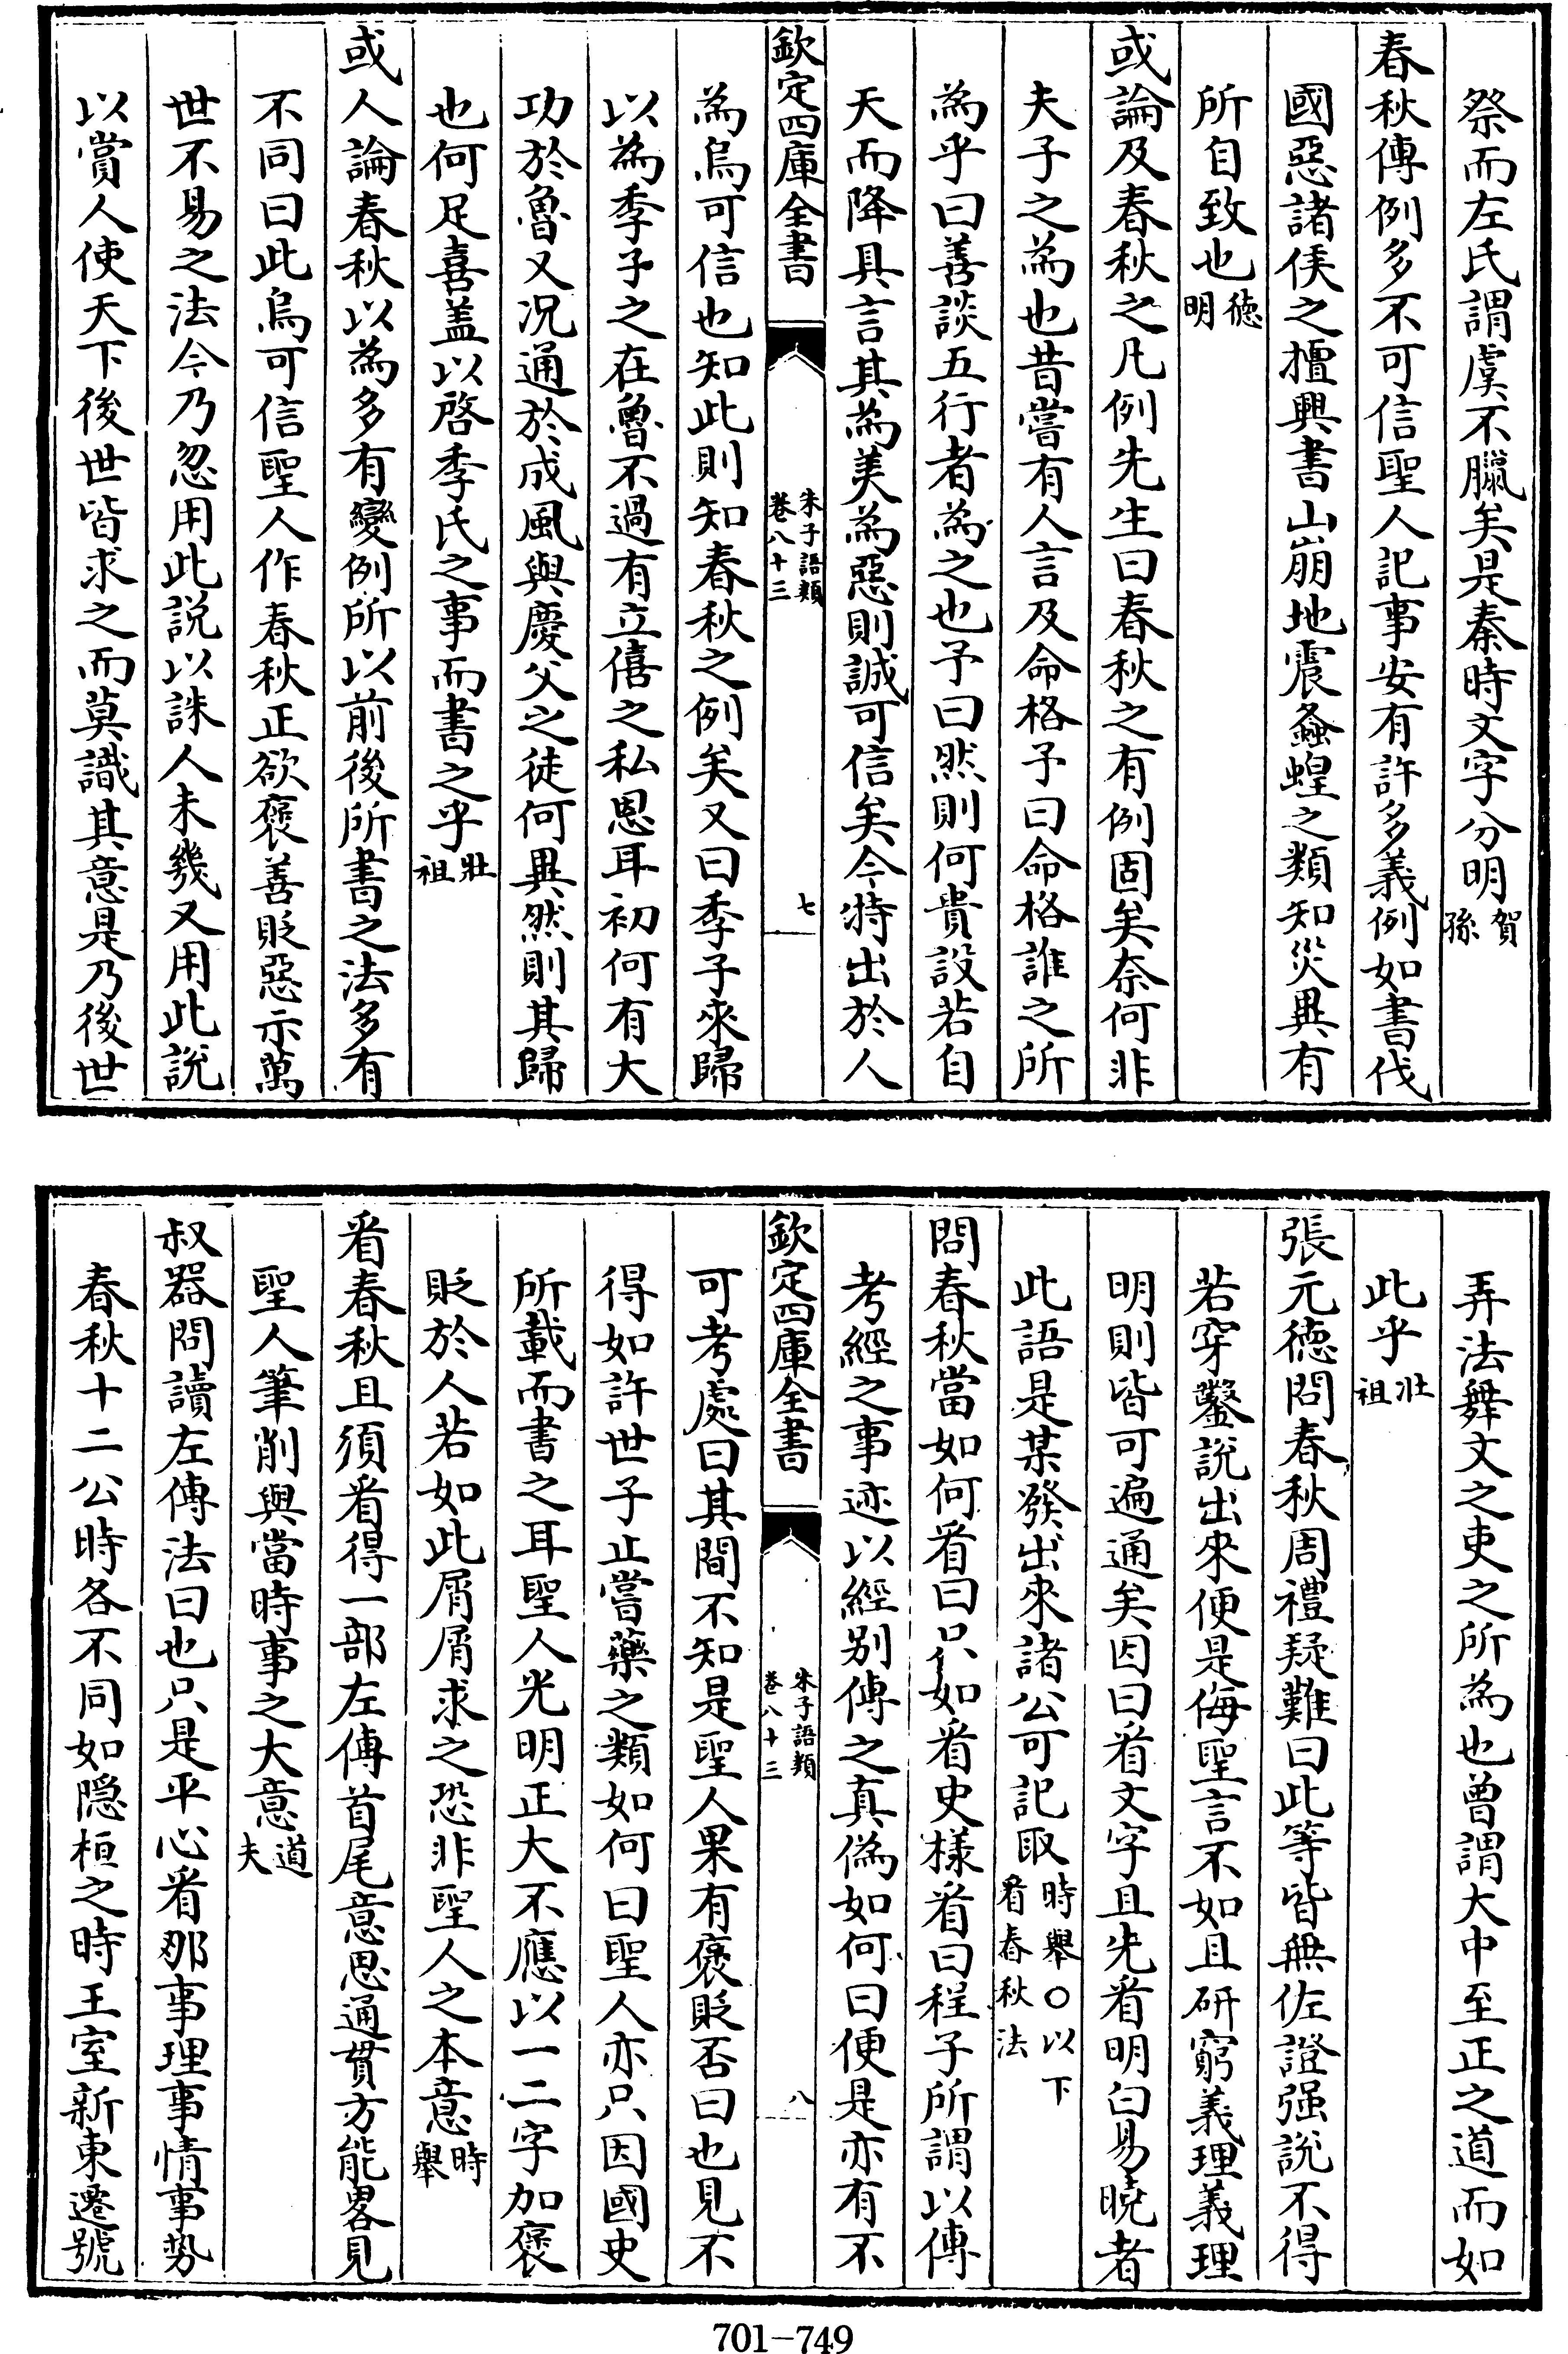 祭而左氏謂虞不臘矣是秦時文字分明賀孫
春秋傳例多不可信聖人記事安有許多義例如書伐
國惡諸侯之擅興書山崩地震螽蝗之類知災異有
所自致也德明
或論及春秋之凡例先生曰春秋之有例固矣奈何非
夫子之為也昔嘗有人言及命格予曰命格誰之所
為乎曰善談五行者為之也予曰然則何貴設若自
天而降具言其為美為惡則誠可信矣今特出於人
欽定四庫全書
朱子語類
卷八十三
七
為烏可信也知此則知春秋之例矣又曰季子來歸
以為季子之在魯不過有立僖之私恩耳初何有大
功於魯又况通於成風與慶父之徒何異然則其歸
也何足喜盖以啓季氏之事而書之乎壯祖
或人論春秋以為多有變例所以前後所書之法多有
不同曰此烏可信聖人作春秋正欲褒善貶惡示萬
世不易之法今乃忽用此説以誅人未幾又用此説
以賞人使天下後世皆求之而莫識其意是乃後世
弄法舞文之吏之所為也曾謂大中至正之道而如
此乎壯祖
張元德問春秋周禮疑難曰此等皆無佐證强説不得
若穿鑿説出來便是侮聖言不如且研窮義理義理
明則皆可遍通矣因曰㸔文字且先㸔明白易曉者
此語是某發出來諸公可記取時舉○以下㸔春秋法
問春秋當如何㸔曰只如㸔史樣㸔曰程子所謂以傳
考經之事迹以經别傳之真偽如何曰便是亦有不
欽定四庫全書
朱子語類
卷八十三
八
可考處曰其間不知是聖人果有褒貶否曰也見不
得如許世子止嘗藥之類如何曰聖人亦只因國史
所載而書之耳聖人光明正大不應以一二字加褒
貶於人若如此屑屑求之恐非聖人之本意時舉
㸔春秋且須㸔得一部左傳首尾意思通貫方能畧見
聖人筆削與當時事之大意道夫
叔器問讀左傳法曰也只是平心㸔那事理事情事勢
春秋十二公時各不同如隱桓之時王室新東遷號
701-749